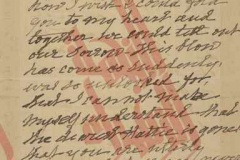 how I wish I could fold
you to my heart and
together we could talk out
our sorrow. This blow
has come so suddenly
was so unlooked for,
that I can not make
myself understand that
the dearest Hattie is gone
that you are